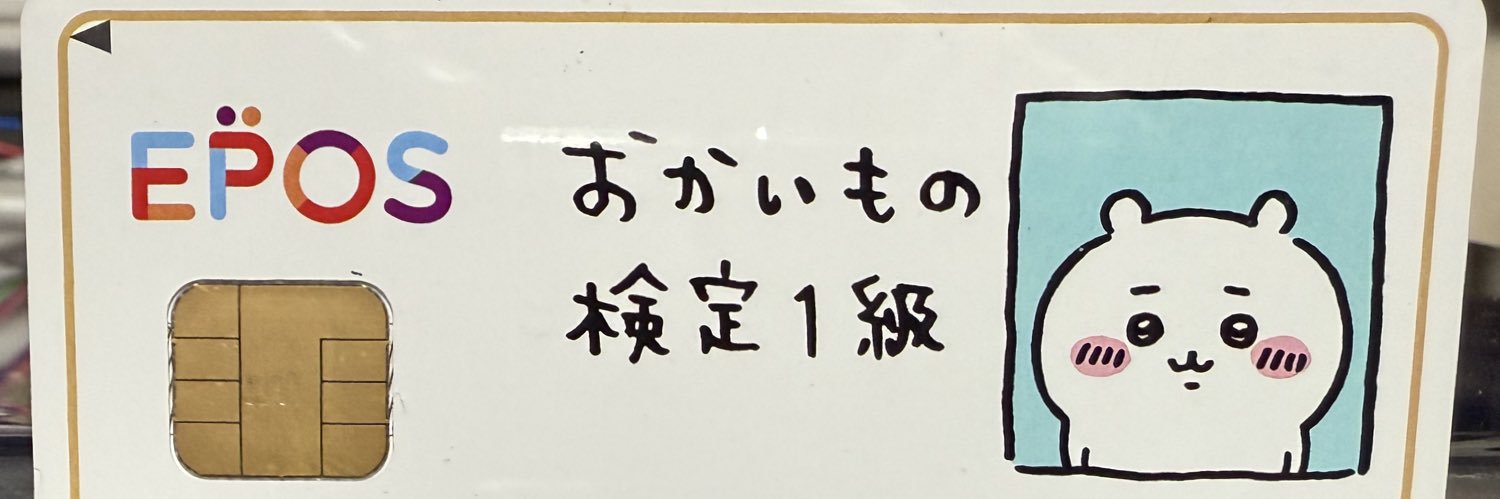 EPOS
おかいもの
検定1級